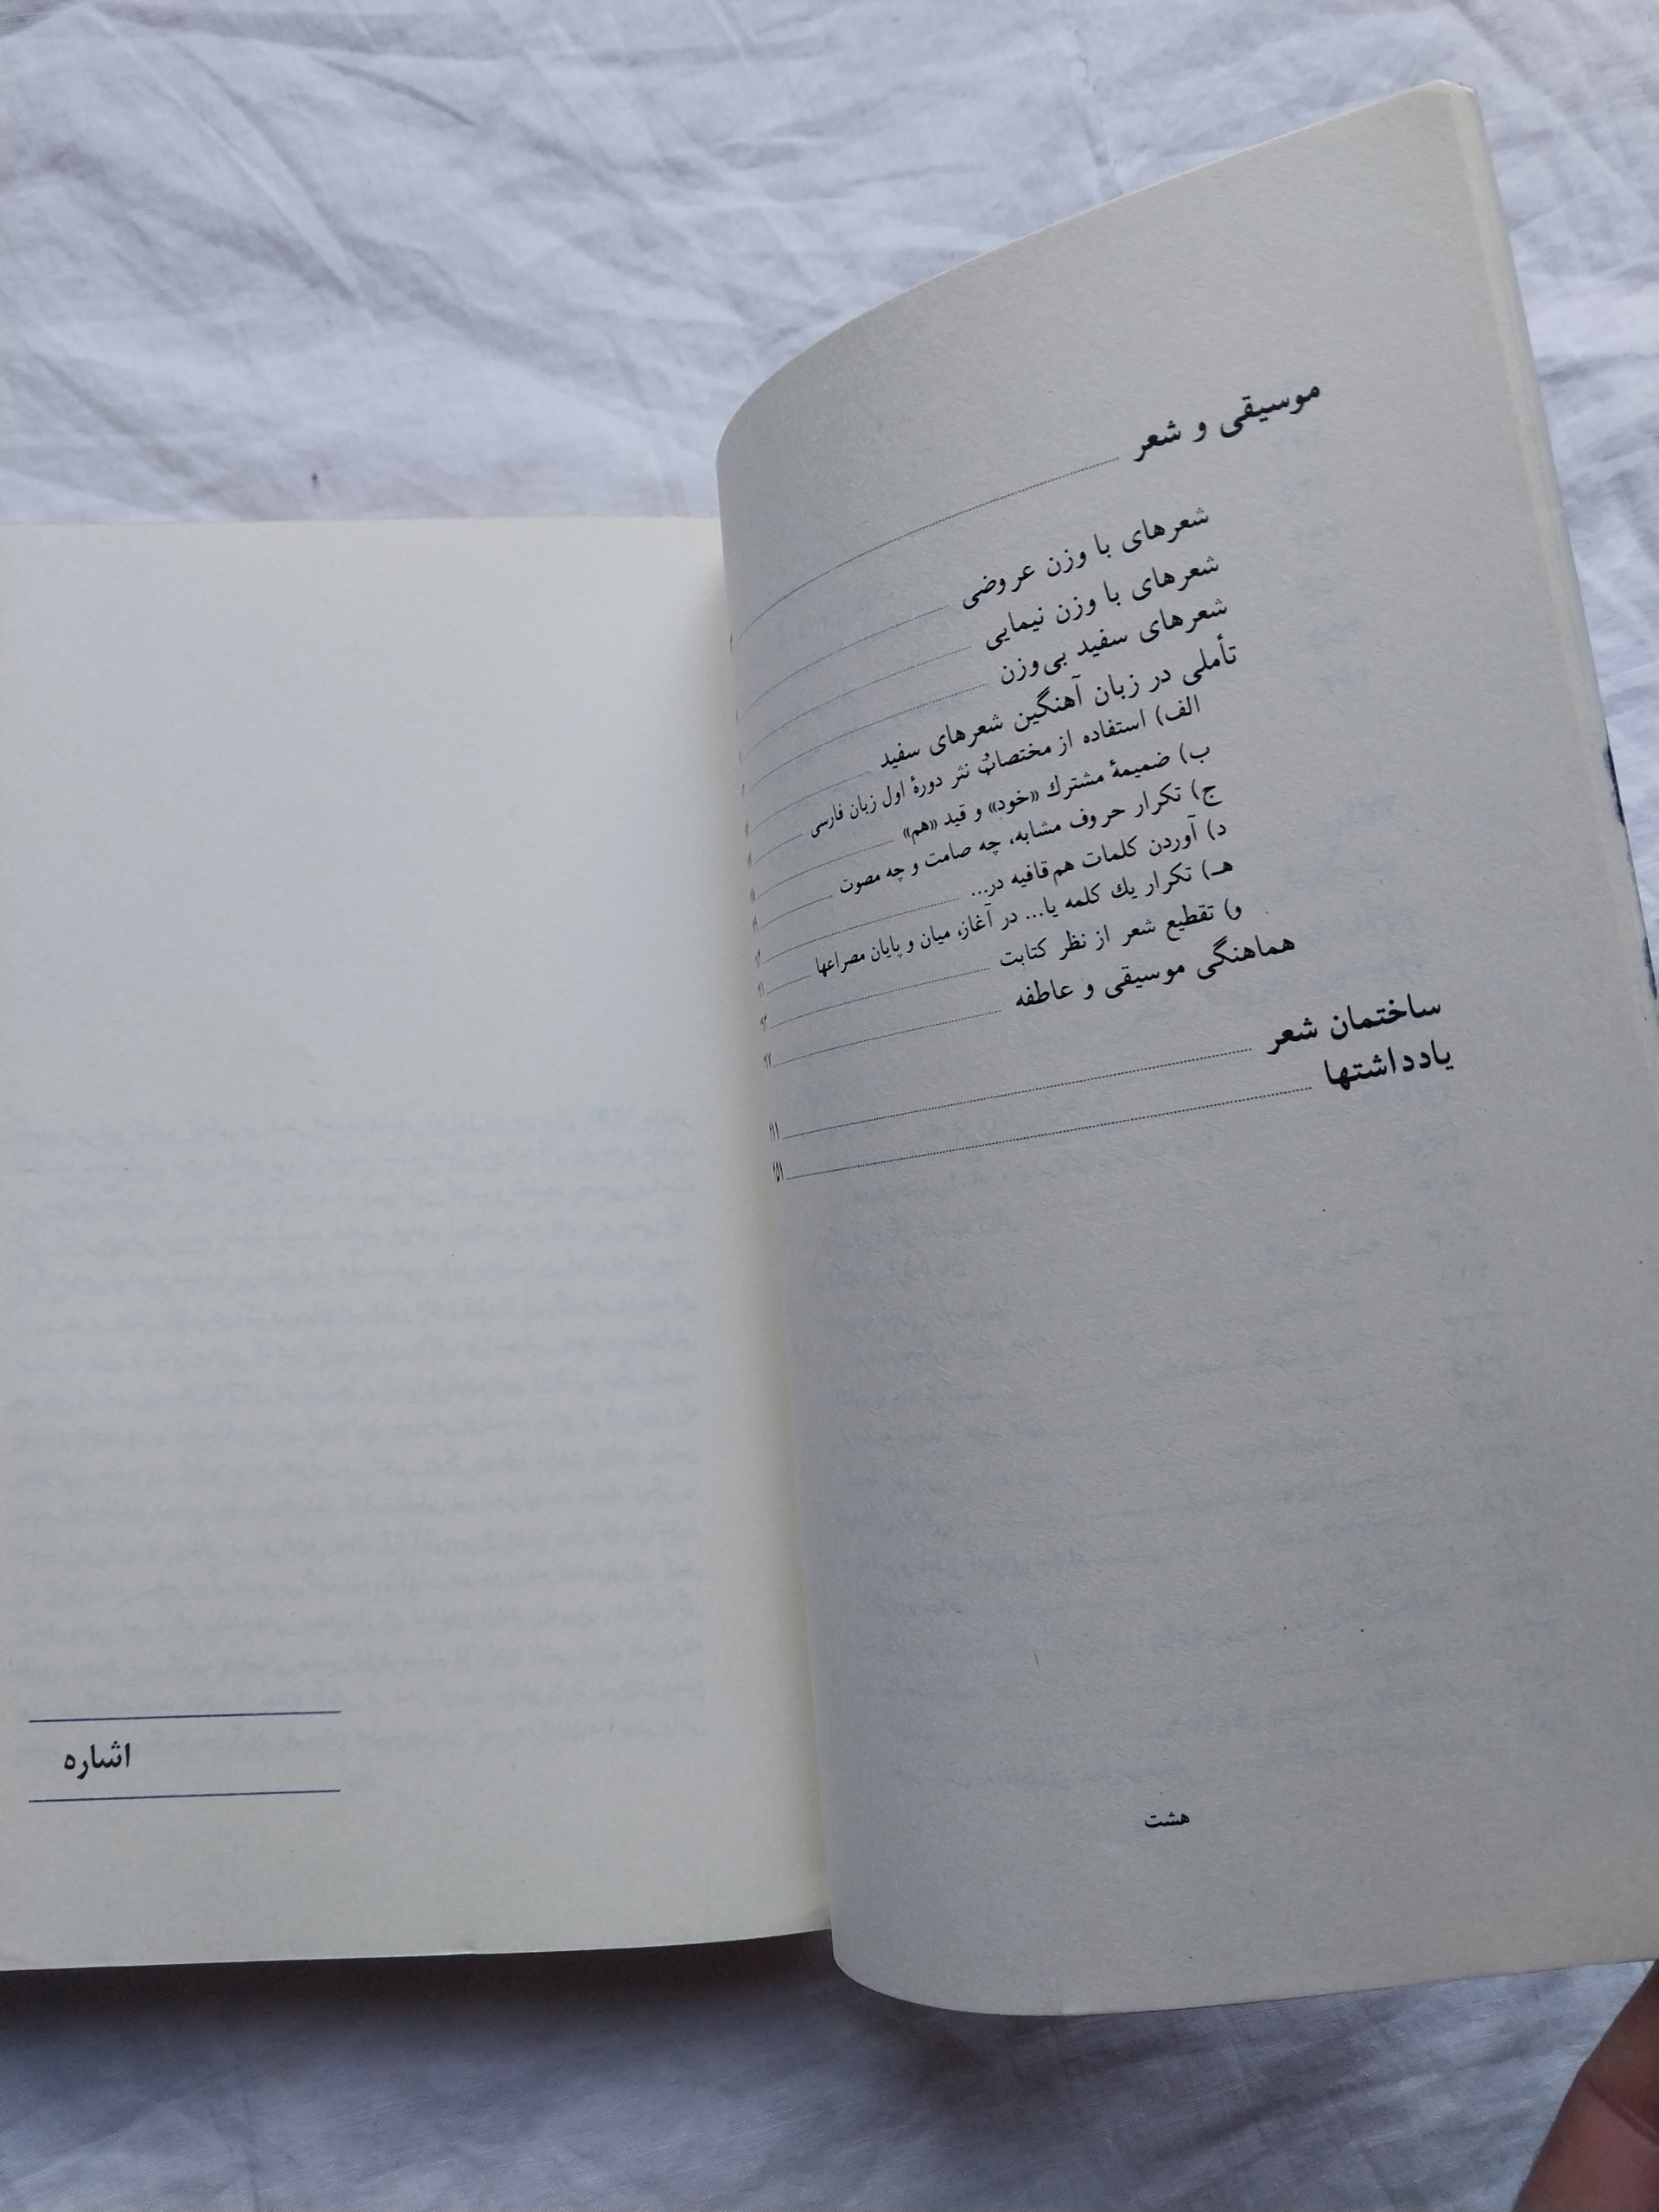 موسیقی و شعر
شعرهای با وزن عروضی
شعرهای با وزن نیمایی
شعرهای سفید بی‌وزن
تأملی در زبان آهنگین شعرهای سفید
الف) استفاده از مختصات نثر دورهٔ اول زبان فارسی
ب) ضمیمهٔ مشترك «خود» و قید «هم»
ج) تکرار حروف مشابه، چه صامت و چه مصوت
د) آوردن کلمات هم‌قافیه در...
هـ) تکرار یك کلمه یا... در آغاز، میان و پایان مصراعها
و) تقطیع شعر از نظر کتابت
هماهنگی موسیقی و عاطفه
ساختمان شعر
یادداشتها
هشت
اشاره